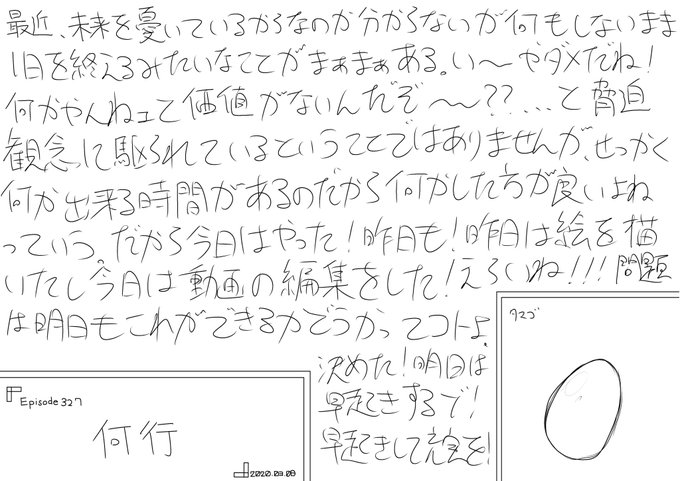 最近、未来を憂いているからなのか分からないが何もしないまま
1日を終えるみたいなことがまぁまぁある。い〜やダメだね!
何かやんねェと価値がないんだぞ〜〜??....と脅迫
観念に駆られているということではありませんが、せっかく
何か出来る時間があるのだから何かした方が良いよね
っていう。だから今日はやった!昨日も!昨日は絵を描
いたし今日は動画の編集をした!えらいね!!!問題
は明日もこれができるかどうかってコトよ。
決めた!明日は
早起きするで!
早起きして充実を!
Episode 327
何行
2020.03.08
タマゴ